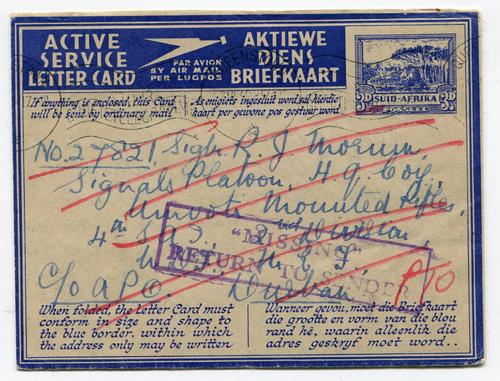 ACTIVE SERVICE LETTER CARD
PAR AVION
BY AIR MAIL
PER LUGPOS
AKTIEWE DIENS BRIEFKAART
3D SUID-AFRIKA 3D
POSSEEL
If anything is enclosed, this Card will be sent by ordinary mail
As enigiets ingesluit word, sal hierdie kaart per gewone pos gestuur word
No. 27821 Sigr. R. J.
Signals Platoon, H.Q. Coy,
Umvoti Mounted Rifles,
4th 2nd Division,
M.E.F.
c/o A P O Durban
P/O
"MISSING"
RETURN TO SENDER
When folded, the Letter Card must
conform in size and shape to
the blue border, within which
the address only may be written
Wanneer gevou, moet die Briefkaart
die grootte en vorm van die blou
rand hê, waarin alleenlik die
adres geskryf moet word..